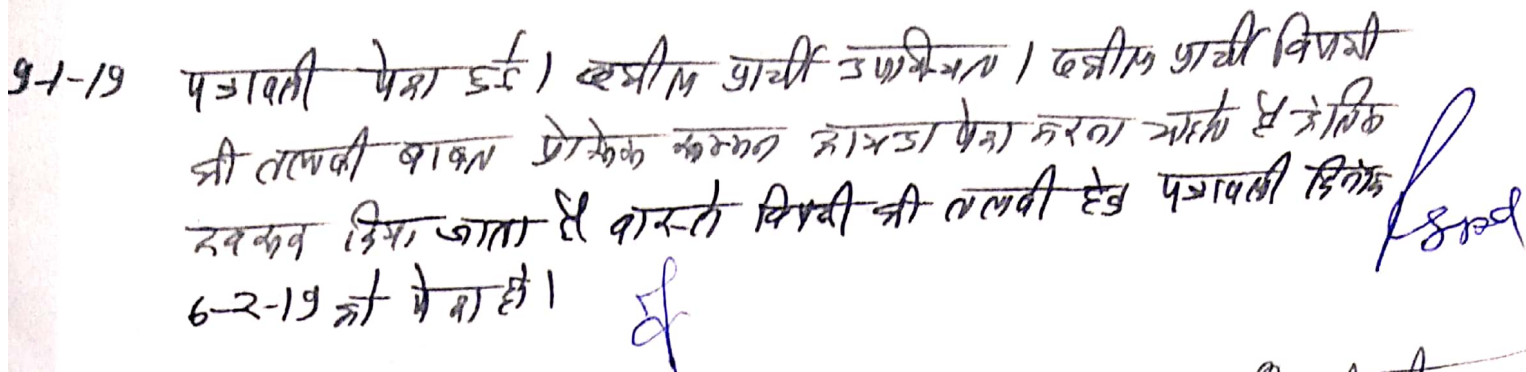 9-1-19 पत्रावली पेश हुई। वकील प्रार्थी उपस्थित। वकील प्रार्थी विपक्षी
की तलबी बाबत प्रोसेस सम्मन पेश करना चाहते है
किया जाता है वास्ते विपक्षी की तलवी हेतु पत्रावली दिनांक
6-2-19 को पेश हो।